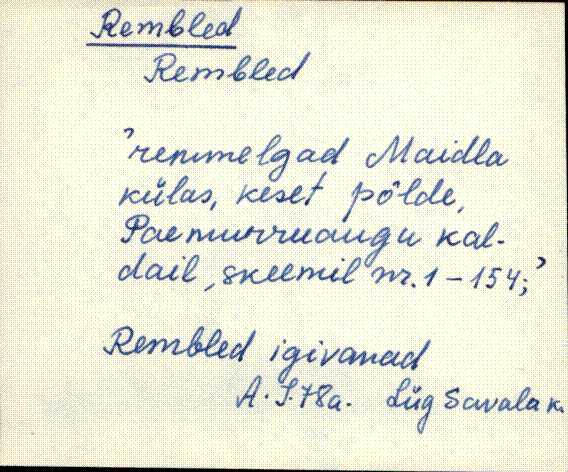 Rembled
Rembled
'remmelgad Maidla
külas, keset põlde,
Paemurruaugu kal-
dail, skeemil nr. 1 - 154;'
Rembled igivanad
A. S. 78a. Lüg Savala k.